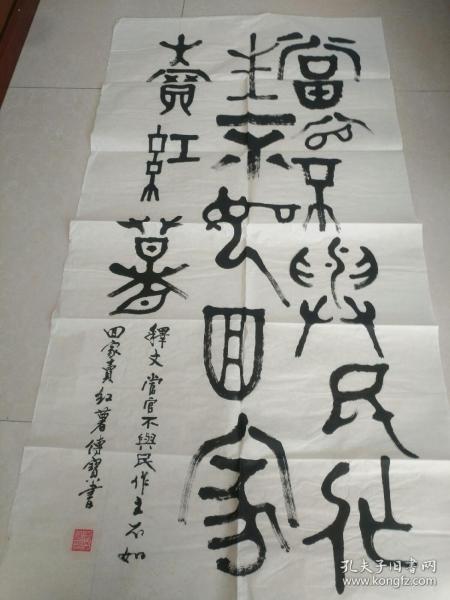 當官不與民作
主不如回家
賣紅薯
釋文 當官不與民作主不如
回家賣紅薯 傳寶書
孔夫子旧书网
www.kongfz.com